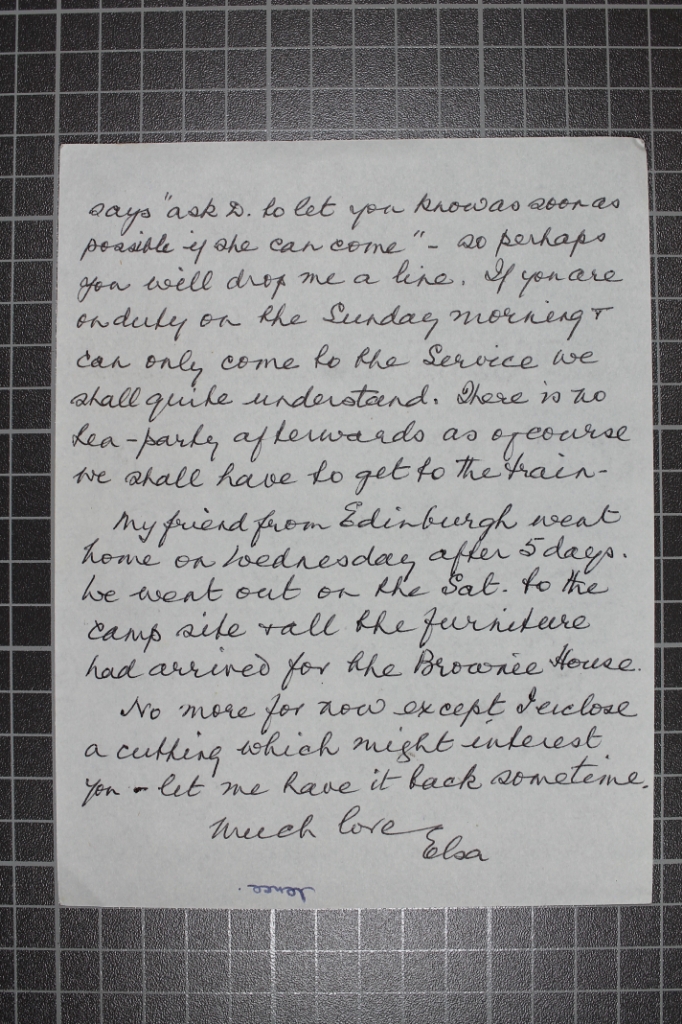 says "ask D. to let you know as soon as
possible if she can come" - so perhaps
you will drop me a line. If you are
on duty on the Sunday morning +
can only come to the Service we
shall quite understand. There is no
tea-party afterwards as of course
we shall have to get to the train -
My friend from Edinburgh went
home on Wednesday after 5 days.
We went out on the Sat. to the
camp site + all the furniture
had arrived for the Brownie House.
No more for now except I enclose
a cutting which might interest
you - let me have it back sometime.
Much love
Elsa